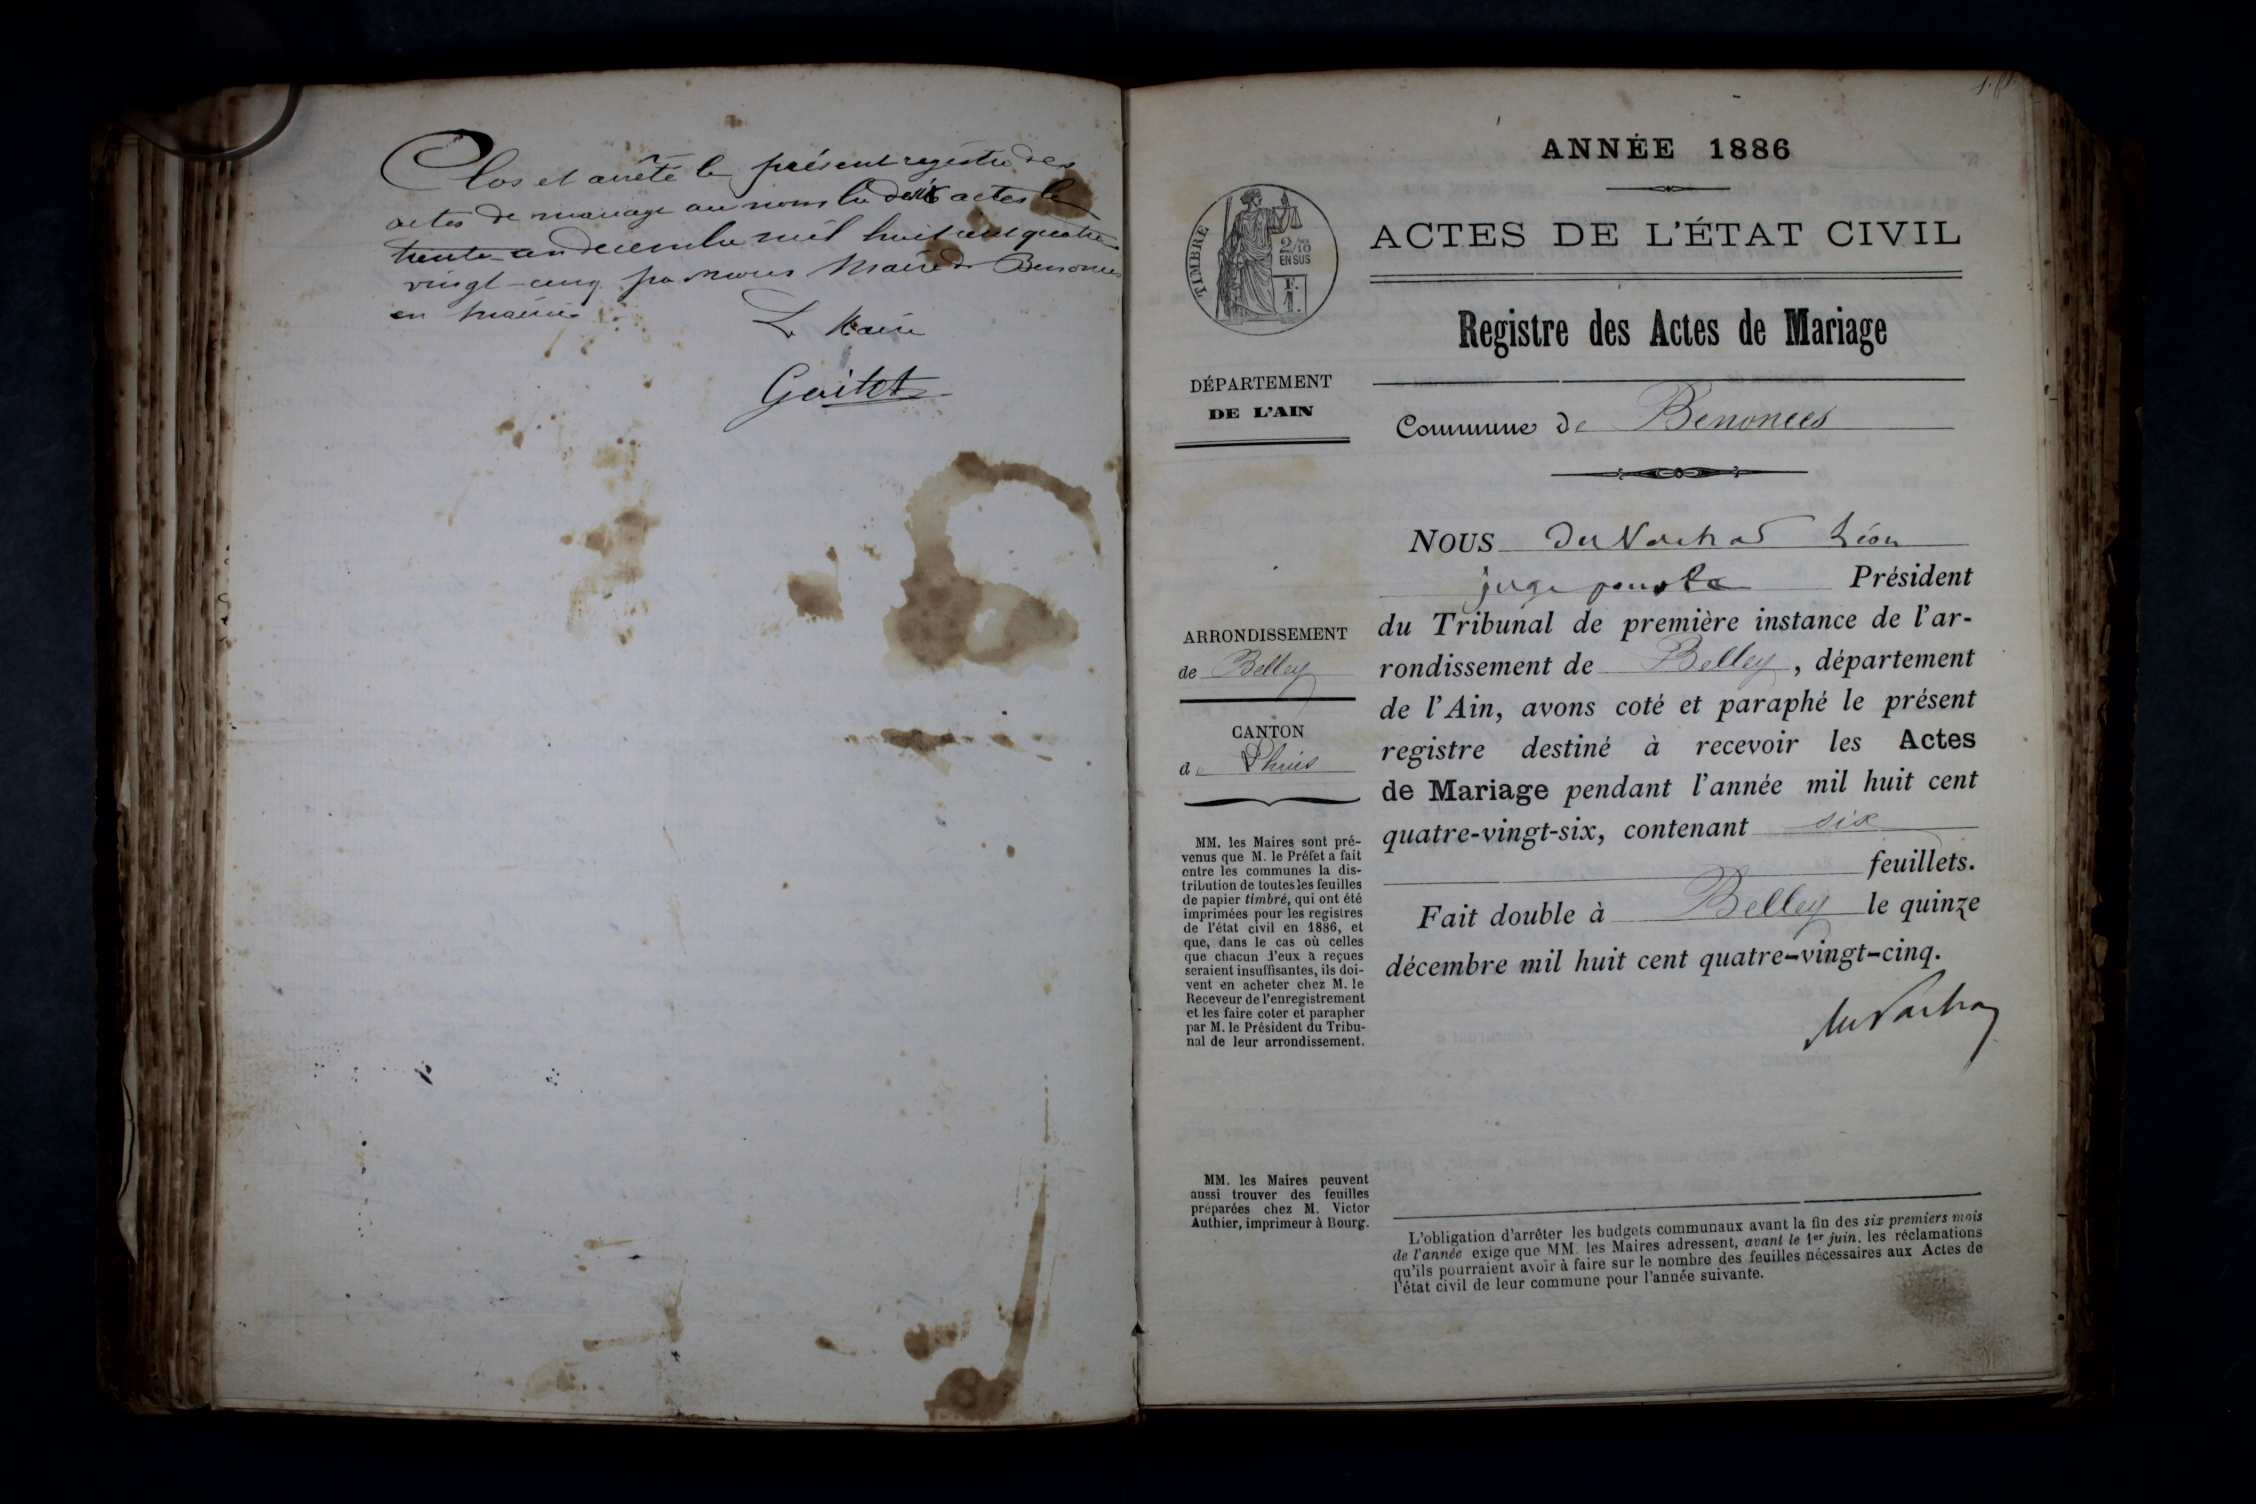 Clos et arrêté le présent registre des
actes de mariage au nombre de actes le
trente-un décembre mil huit cent quatre
vingt-cinq par nous Maire de Benonces
en Mairie.
Le Maire
Goitet
ANNÉE 1886
TIMBRE
2/10
EN SUS
ACTES DE L'ÉTAT CIVIL
Registre des Actes de Mariage
DÉPARTEMENT
DE L'AIN
Commune de Benonces
ARRONDISSEMENT
de Belley
CANTON
de Lhuis
MM. les Maires sont pré-
venus que M. le Préfet a fait
entre les communes la dis-
tribution de toutes les feuilles
de papier timbré, qui ont été
imprimées pour les registres
de l'état civil en 1886, et
que, dans le cas où celles
que chacun d'eux a reçues
seraient insuffisantes, ils doi-
vent en acheter chez M. le
Receveur de l'enregistrement
et les faire coter et parapher
par M. le Président du Tribu-
nal de leur arrondissement.
MM. les Maires peuvent
aussi trouver des feuilles
préparées chez M. Victor
Authier, imprimeur à Bourg.
NOUS Léon
juge Président
du Tribunal de première instance de l'ar-
rondissement de Belley, département
de l'Ain, avons coté et paraphé le présent
registre destiné à recevoir les Actes
de Mariage pendant l'année mil huit cent
quatre-vingt-six, contenant six
feuillets.
Fait double à Belley le quinze
décembre mil huit cent quatre-vingt-cinq.
L'obligation d'arrêter les budgets communaux avant la fin des six premiers mois
de l'année exige que MM. les Maires adressent, avant le 1er juin, les réclamations
qu'ils pourraient avoir à faire sur le nombre des feuilles nécessaires aux Actes de
l'état civil de leur commune pour l'année suivante.